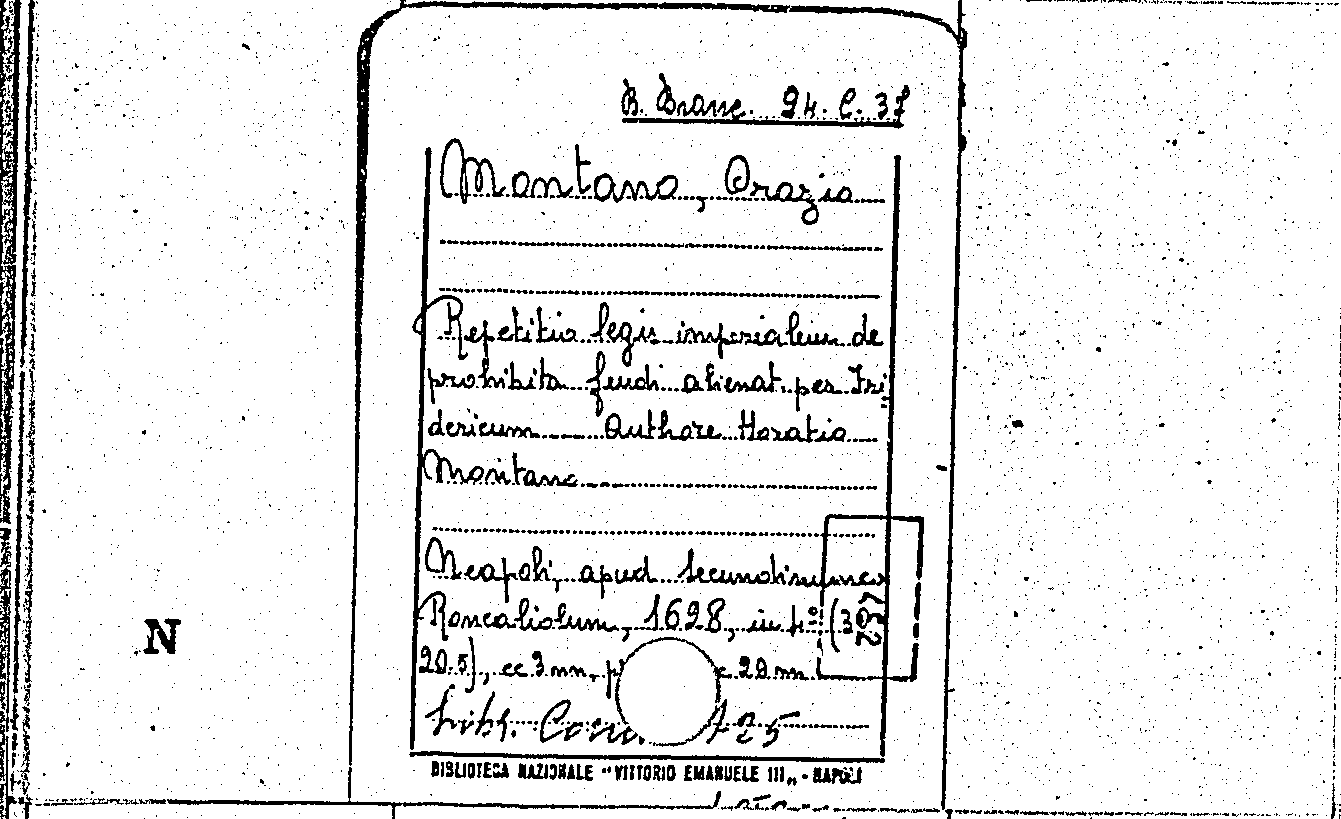 B. Branc. 24. C. 37
Montano, Orazio
Repetitio legis imperialem de
prohibita feudi alienat. per Fri
dericum Authore Horatio
Montano
Neapoli, apud Secundinum
Roncaliolum, 1628, in 4º (30
20.5), cc 3 nn, 20 nn
A 25
BIBLIOTECA NAZIONALE "VITTORIO EMANUELE III„ - NAPOLI
N